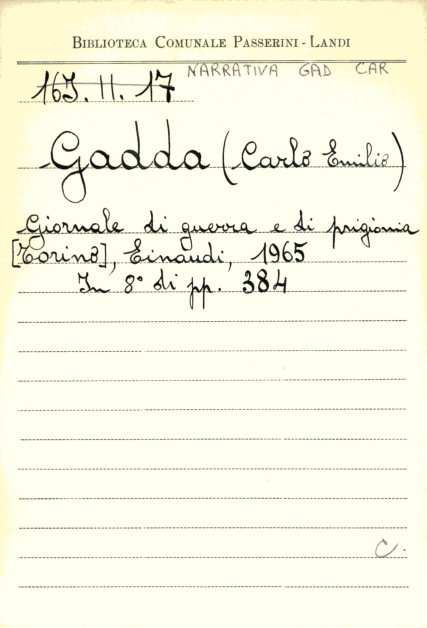 BIBLIOTECA COMUNALE PASSERINI - LANDI
NARRATIVA GAD CAR
16J. II. 17
Gadda (Carlo Emilio)
Giornale di guerra e di prigionia
[Torino], Einaudi, 1965
In 8° di pp. 384
C.